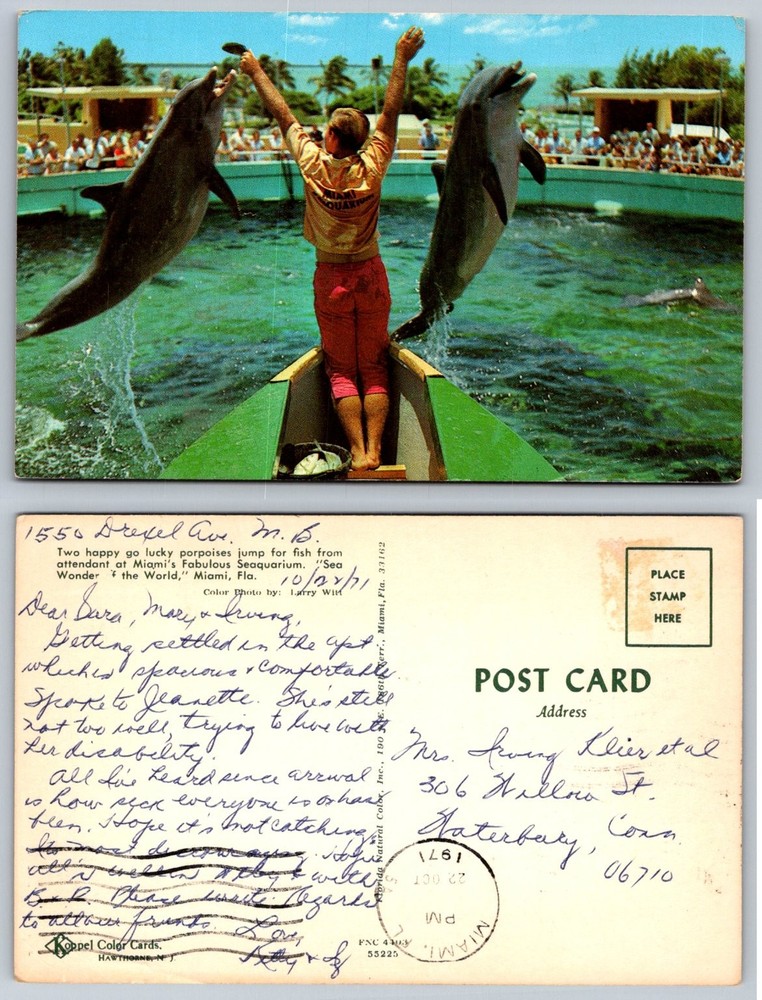 MIAMI
SEAQUARIUM
1550 Drexel Ave. M. B.
Two happy go lucky porpoises jump for fish from
attendant at Miami's Fabulous Seaquarium. "Sea
Wonder of the World," Miami, Fla.
10/22/71
Color Photo by: Larry Witt
Dear Sara, Mary & Irving,
Getting settled in the apt.
which is spacious & comfortable.
Spoke to Jeanette. She's still
not too well, trying to live with
her disability.
All I've heard since arrival
is how sick everyone is or has
been. Hope it's not catching,
Its most discouraging. Hope
all's well in & with
B & R. Please write. Regards
to all our friends. Love,
& Sy
Koppel Color Cards.
HAWTHORNE, N. J.
Florida Natural Color, Inc., 190 N.E. Terr., Miami, Fla. 33162
FNC
55225
PLACE
STAMP
HERE
POST CARD
Address
Mrs. Irving Klier et al
306 Willow St.
Waterbury, Conn.
06710
MIAMI,
PM
22 OCT
1971